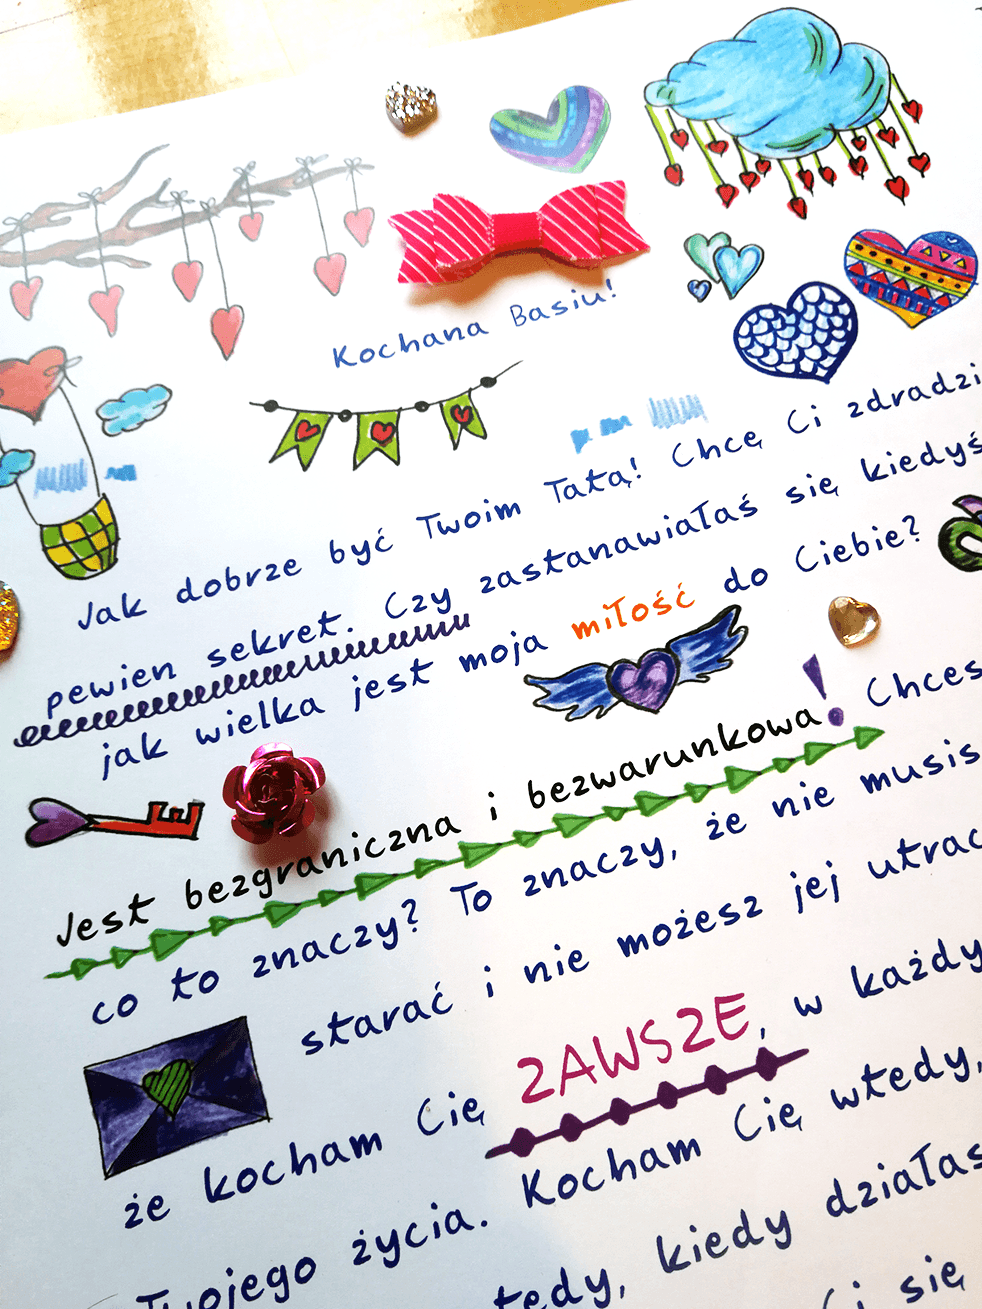 Kochana Basiu!
Jak dobrze być Twoim Tatą! Chcę Ci zdradzi
pewien sekret. Czy zastanawiałaś się kiedyś
jak wielka jest moja miłość do Ciebie?
Jest bezgraniczna i bezwarunkowa! Chces
co to znaczy? To znaczy, że nie musis
starać i nie możesz jej utrac
że kocham Cię ZAWSZE, w każdy
Twojego życia. Kocham Cię wtedy,
tedy, kiedy działas
Ci się